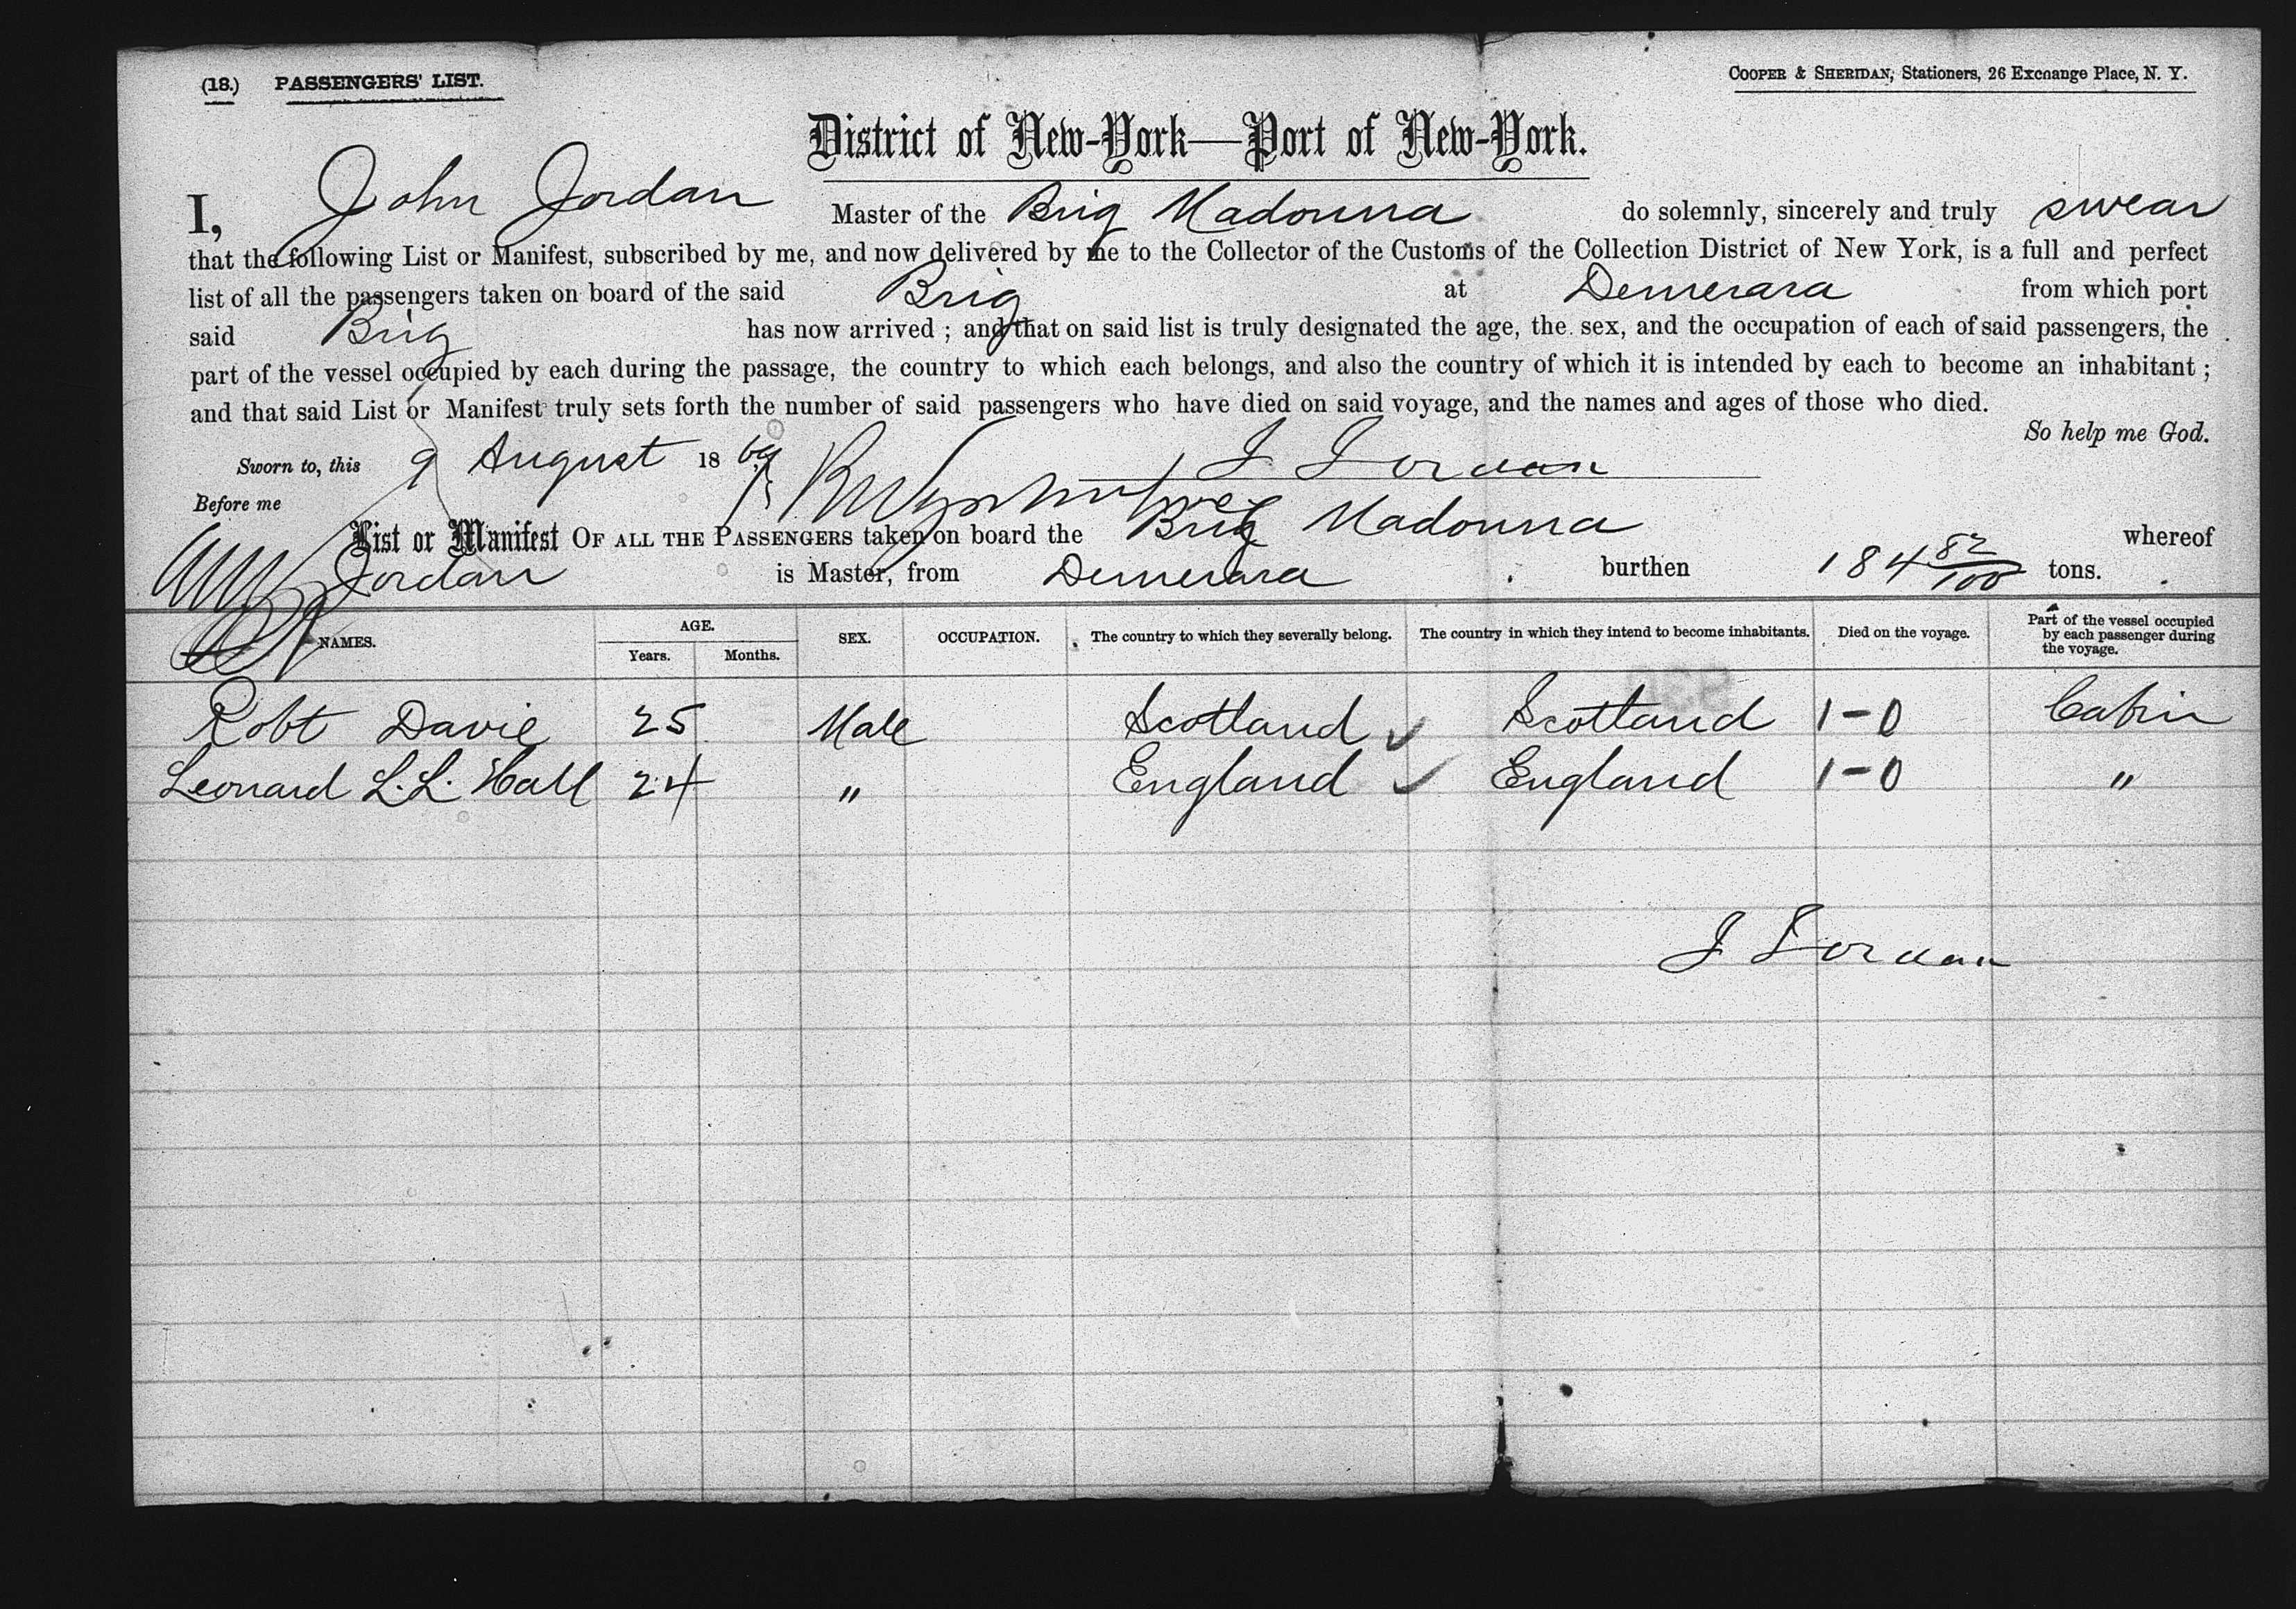 (18.) PASSENGERS' LIST.
COOPER & SHERIDAN, Stationers, 26 Exchange Place, N. Y.
District of New-York—Port of New-York.
I, John Jordan Master of the Brig Madonna do solemnly, sincerely and truly swear
that the following List or Manifest, subscribed by me, and now delivered by me to the Collector of the Customs of the Collection District of New York, is a full and perfect
list of all the passengers taken on board of the said Brig at Demerara from which port
said Brig has now arrived ; and that on said list is truly designated the age, the sex, and the occupation of each of said passengers, the
part of the vessel occupied by each during the passage, the country to which each belongs, and also the country of which it is intended by each to become an inhabitant ;
and that said List or Manifest truly sets forth the number of said passengers who have died on said voyage, and the names and ages of those who died.
So help me God.
Sworn to, this 9 August 1869 J Jordan
Before me
List or Manifest OF ALL THE PASSENGERS taken on board the Brig Madonna whereof
Jordan is Master, from Demerara burthen 184 82/100 tons.
NAMES. AGE. Years. Months. SEX. OCCUPATION. The country to which they severally belong. The country in which they intend to become inhabitants. Died on the voyage. Part of the vessel occupied by each passenger during the voyage.
Robt Davie 25 Male Scotland ✓ Scotland 1-0 Cabin
Leonard L.L. Hall 24 " England ✓ England 1-0 "
J Jordan